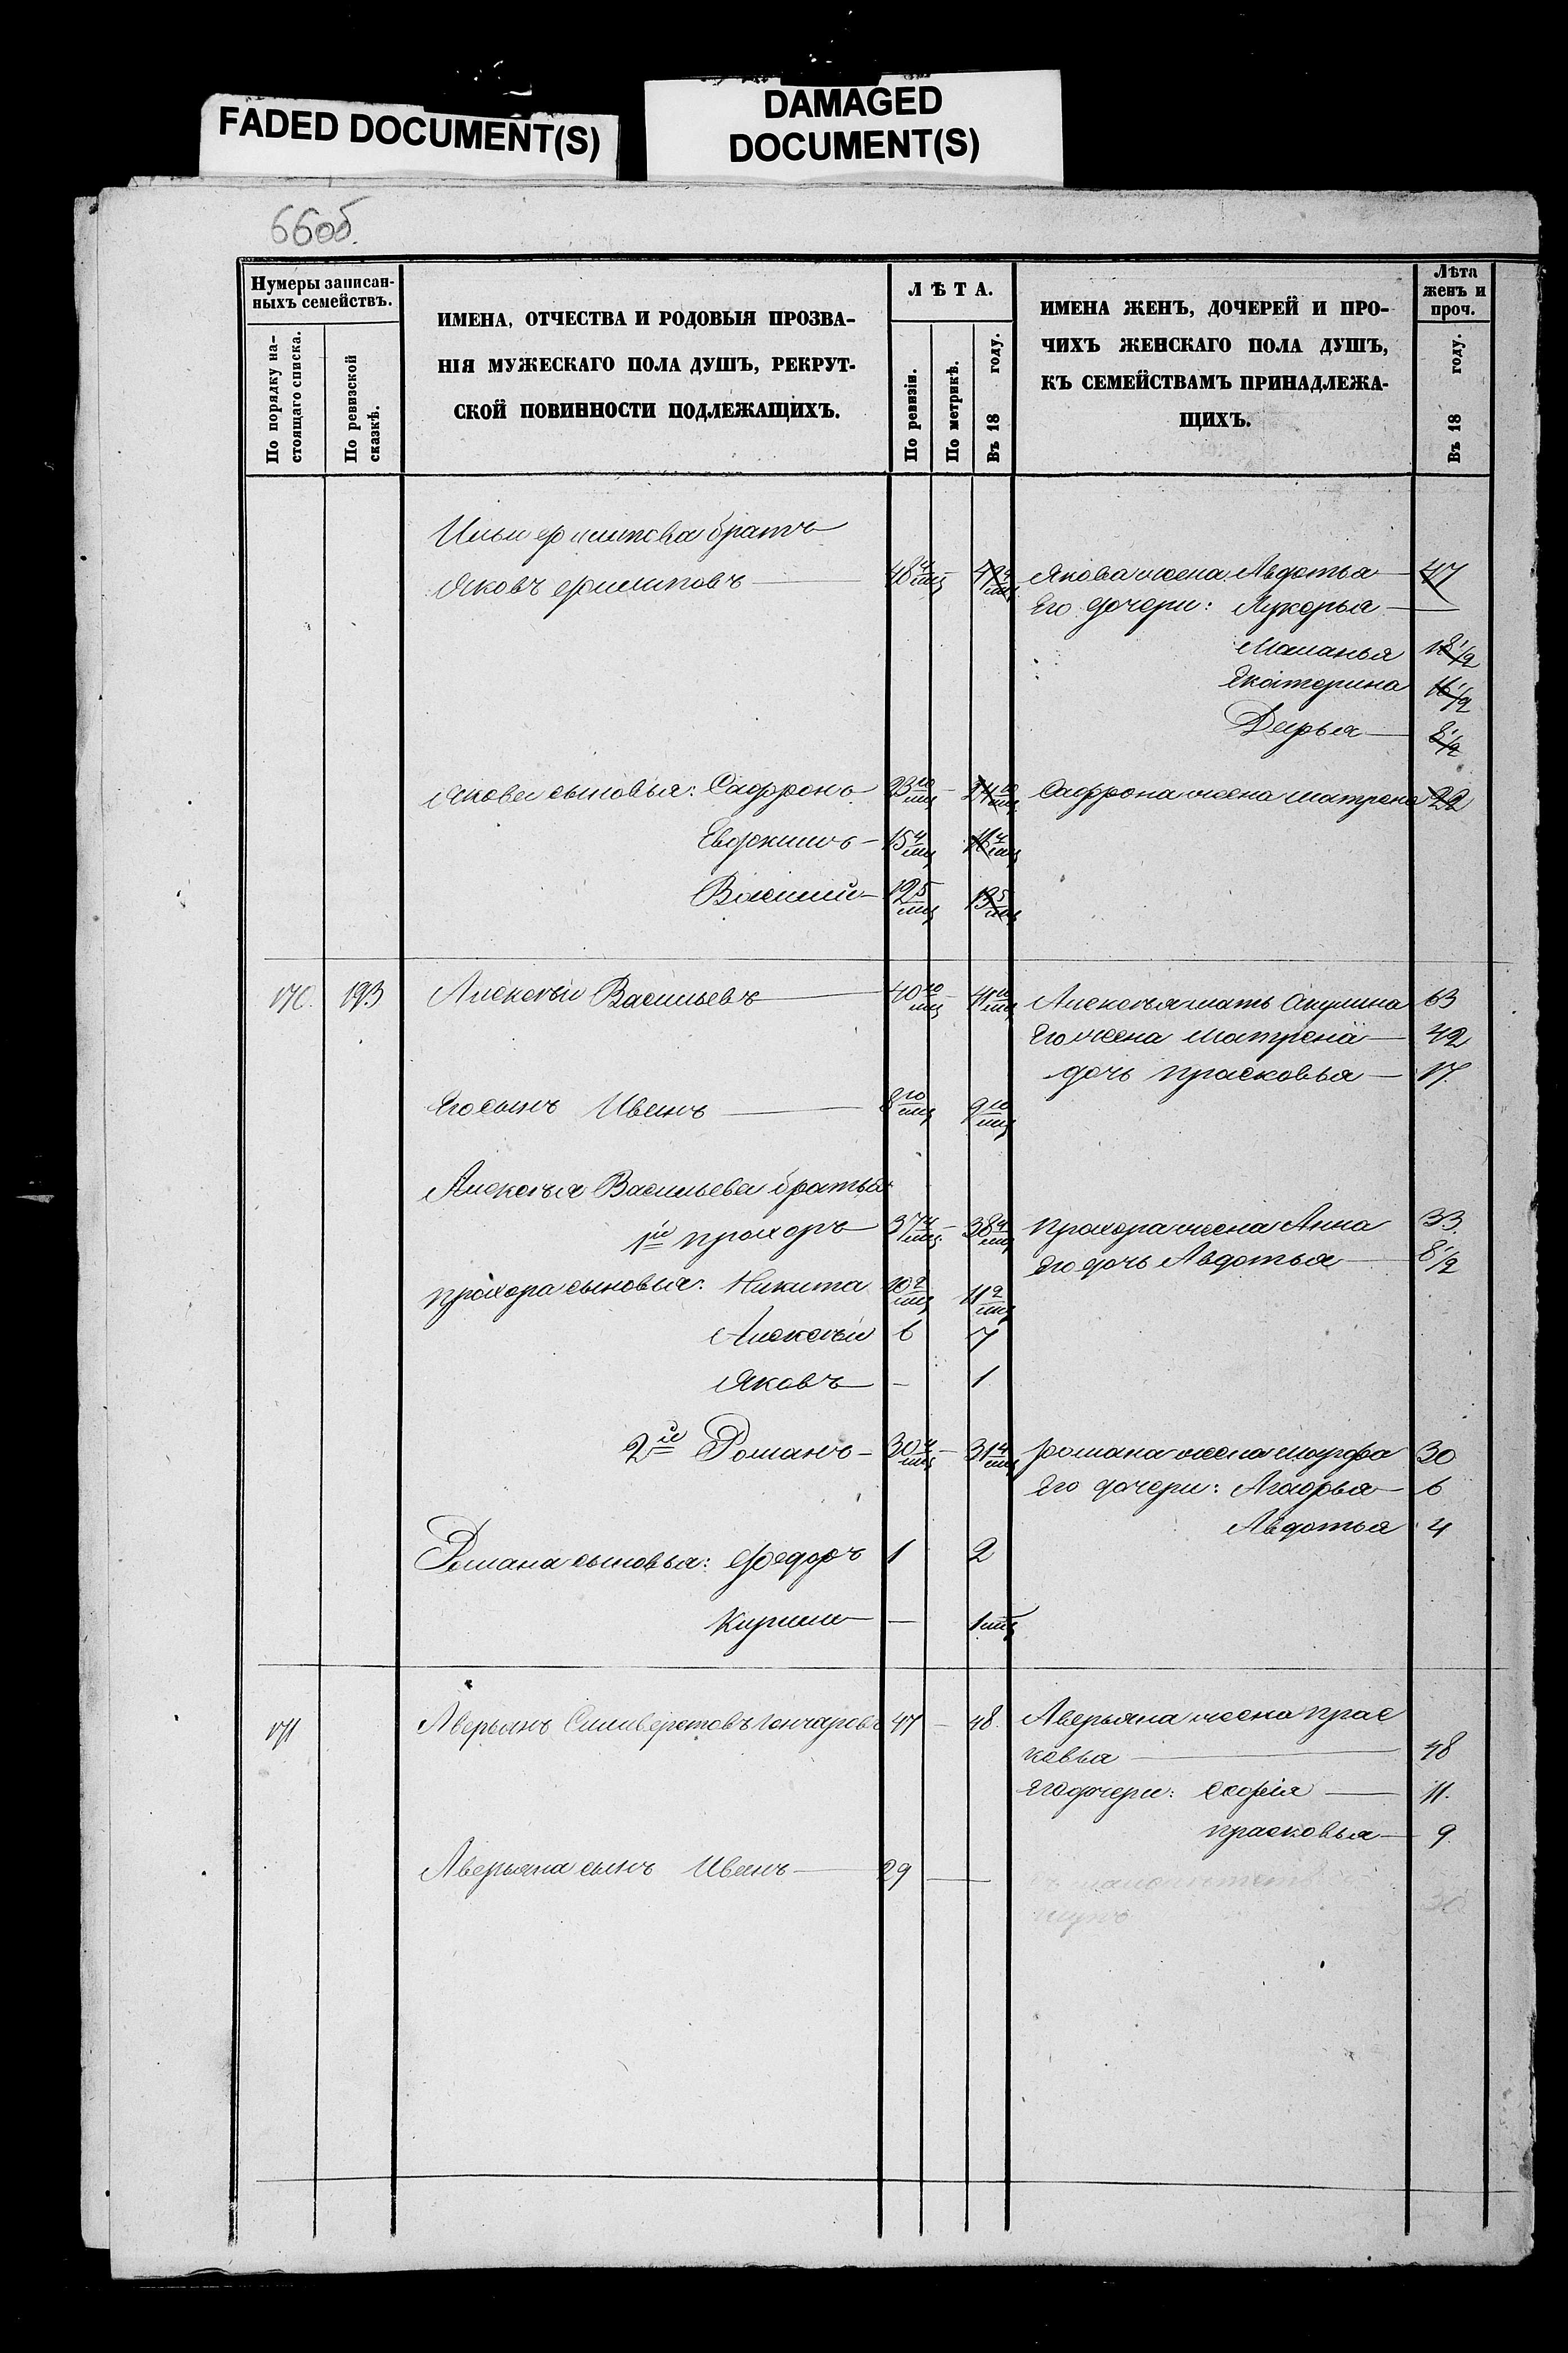 FADED DOCUMENT(S)
DAMAGED
DOCUMENT(S)
66об.
Нумеры записан-
ныхъ семействъ.
По порядку на-
стоящаго списка.
По ревизской
сказкѣ.
ИМЕНА, ОТЧЕСТВА И РОДОВЫЯ ПРОЗВА-
НІЯ МУЖЕСКАГО ПОЛА ДУШЪ, РЕКРУТ-
СКОЙ ПОВИННОСТИ ПОДЛЕЖАЩИХЪ.
ЛѢТА.
По ревизіи.
По метрикѣ.
Въ 18 году.
ИМЕНА ЖЕНЪ, ДОЧЕРЕЙ И ПРО-
ЧИХЪ ЖЕНСКАГО ПОЛА ДУШЪ,
КЪ СЕМЕЙСТВАМЪ ПРИНАДЛЕЖА-
ЩИХЪ.
Лѣта
женъ и
проч.
Въ 18 году.
Ильи филипова братъ
Яковъ филиповъ — 48 4/мц — 49 4/мц Якова жена Авдотья — 47
Его дочери: Лукерья —
Маланья 18 1/2
Екатерина 16 1/2
Дарья — 8 1/2
Якова сыновья: Сафронъ 23 10/мц — 24 10/мц Сафрона жена матрена 22
Евфкимъ — 15 4/мц 16 4/мц
Василий — 12 5/мц 13 5/мц
170. 193 Алексѣй Васильевъ — 40 10/мц — 41 10/мц Алексѣя мать Акулина 63
Его жена матрена — 42
дочь прасковья — 17.
Его сынъ Иванъ — 8 10/мц 9 10/мц
Алексѣя Васильева братья
1й прохоръ 37 4/мц — 38 4/мц прохора жена Анна 33.
Его дочь Авдотья — 8 1/2
прохора сыновья: Никита 10 2/мц 11 2/мц
Алексѣй 6 7
Яковъ — 1
2й Романъ — 30 4/мц — 31 4/мц романа жена марфа 30
Его дочери: Агафья — 6
Авдотья 4
Романа сыновья: Федоръ 1 2
Кирила — 1 мц
171 Аверьянъ Селиверстовъ Гончаровъ 47 — 48. Аверьяна жена прас
ковья — 48
Его дочери: Софія — 11.
прасковья — 9.
Аверьяна сынъ Иванъ — 29 —
30